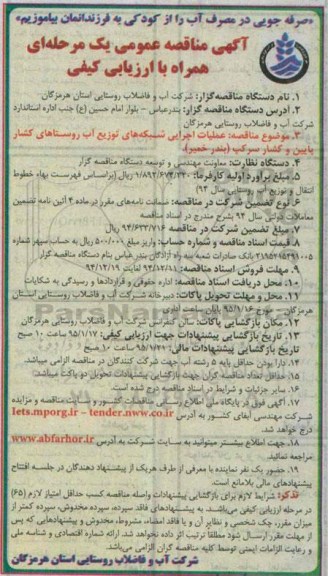 «صرفه جویی در مصرف آب را از کودکی به فرزندانمان بیاموزیم»
آگهی مناقصه عمومی یک مرحله‌ای
همراه با ارزیابی کیفی
۱. نام دستگاه مناقصه‌گزار: شرکت آب و فاضلاب روستایی استان هرمزگان
۲. آدرس دستگاه مناقصه گزار: بندرعباس – بلوار امام حسین (ع) جنب اداره استاندارد
شرکت آب و فاضلاب روستایی هرمزگان
۳. موضوع مناقصه: عملیات اجرایی شبکه‌های توزیع آب روستاهای کشار
پایین و کشار سرکپ (بندر خمیر).
۴. دستگاه نظارت: معاونت مهندسی و توسعه دستگاه مناقصه گزار
۵. مبلغ برآورد اولیه کارفرما: ریال (براساس فهرست بهاء خطوط
انتقال و توزیع آب روستایی سال ۹۴)
۶. نوع تضمین شرکت در مناقصه: ضمانت نامه‌های مقرر در ماده ۴ آئین نامه تضمین
معاملات دولتی سال ۹۴ بشرح مندرج در اسناد مناقصه
۷. مبلغ تضمین شرکت در مناقصه ۹۴/۶۳۳/۷۱۶ ریال
۸. قیمت اسناد مناقصه و شماره حساب: واریز مبلغ ۵۰۰/۰۰۰ ریال به حساب سپهر شماره
بانک صادرات شعبه سه راه آزادگان بندرعباس بنام دستگاه مناقصه گزار
۹. مهلت فروش اسناد مناقصه: ۹۴/۱۲/۱۱ لغایت ۹۴/۱۲/۱۹
۱۰. محل دریافت اسناد مناقصه: اداره حقوقی و قراردادها و رسیدگی به شکایات
۱۱. محل و مهلت تحویل پاکات: دبیرخانه شرکت آب و فاضلاب روستایی استان
هرمزگان – مورخ ۹۵/۱/۱۶ پایان ساعت اداری
۱۲. مکان بازگشایی پاکات: سالن کنفرانس شرکت آب و فاضلاب روستایی هرمزگان
۱۳. تاریخ بازگشایی پیشنهادات جهت ارزیابی کیفی: ۹۵/۱/۱۷ ساعت ۱۰ صبح
تاریخ بازگشایی پیشنهادات مالی: ساعت ۱۰ صبح
۱۴. دارا بودن حداقل پایه ۵ رشته آب جهت شرکت کنندگان در مناقصه الزامی میباشد.
۱۵. حداقل تعداد مناقصه گران جهت بازگشایی پیشنهادات تحویل دو پاکت میباشد.
۱۶. سایر جزئیات و شرایط در اسناد مناقصه درج شده است.
۱۷. آگهی فوق در پایگاه ملی اطلاع رسانی مناقصات کشور و سایت مناقصه و مزایده
شرکت مهندسی آبفای کشور به آدرس Iets.mporg.ir – tender.nww.co.ir
درج خواهد شد.
۱۸. جهت اطلاع بیشتر میتوانید به سایت شرکت به آدرس www.abfarhor.ir
مراجعه نمائید.
۱۹. حضور یک نفر نماینده با معرفی از طرف هریک از پیشنهاد دهندگان در جلسه افتتاح
پیشنهادهای مالی بلامانع است.
تذکر: شرایط لازم برای بازگشایی پیشنهادات واصله مناقصه کسب حداقل امتیاز لازم (۶۵)
در مرحله ارزیابی کیفی می‌باشند. به پیشنهادهای فاقد سپرده، سپرده مخدوش، سپرده کمتر از
میزان مقرر، چک شخصی و نظایر آن و یا فاقد امضاء، مشروط، مخدوش و پیشنهادهایی که پس
از مهلت مقرر ارسال شود مطلقا ترتیب اثر داده نخواهد شد. ارائه شماره اقتصادی و شناسه ملی
و رعایت الزامات ایمنی توسط کلیه مناقصه گران الزامی می‌باشد.
شرکت آب و فاضلاب روستایی استان هرمزگان